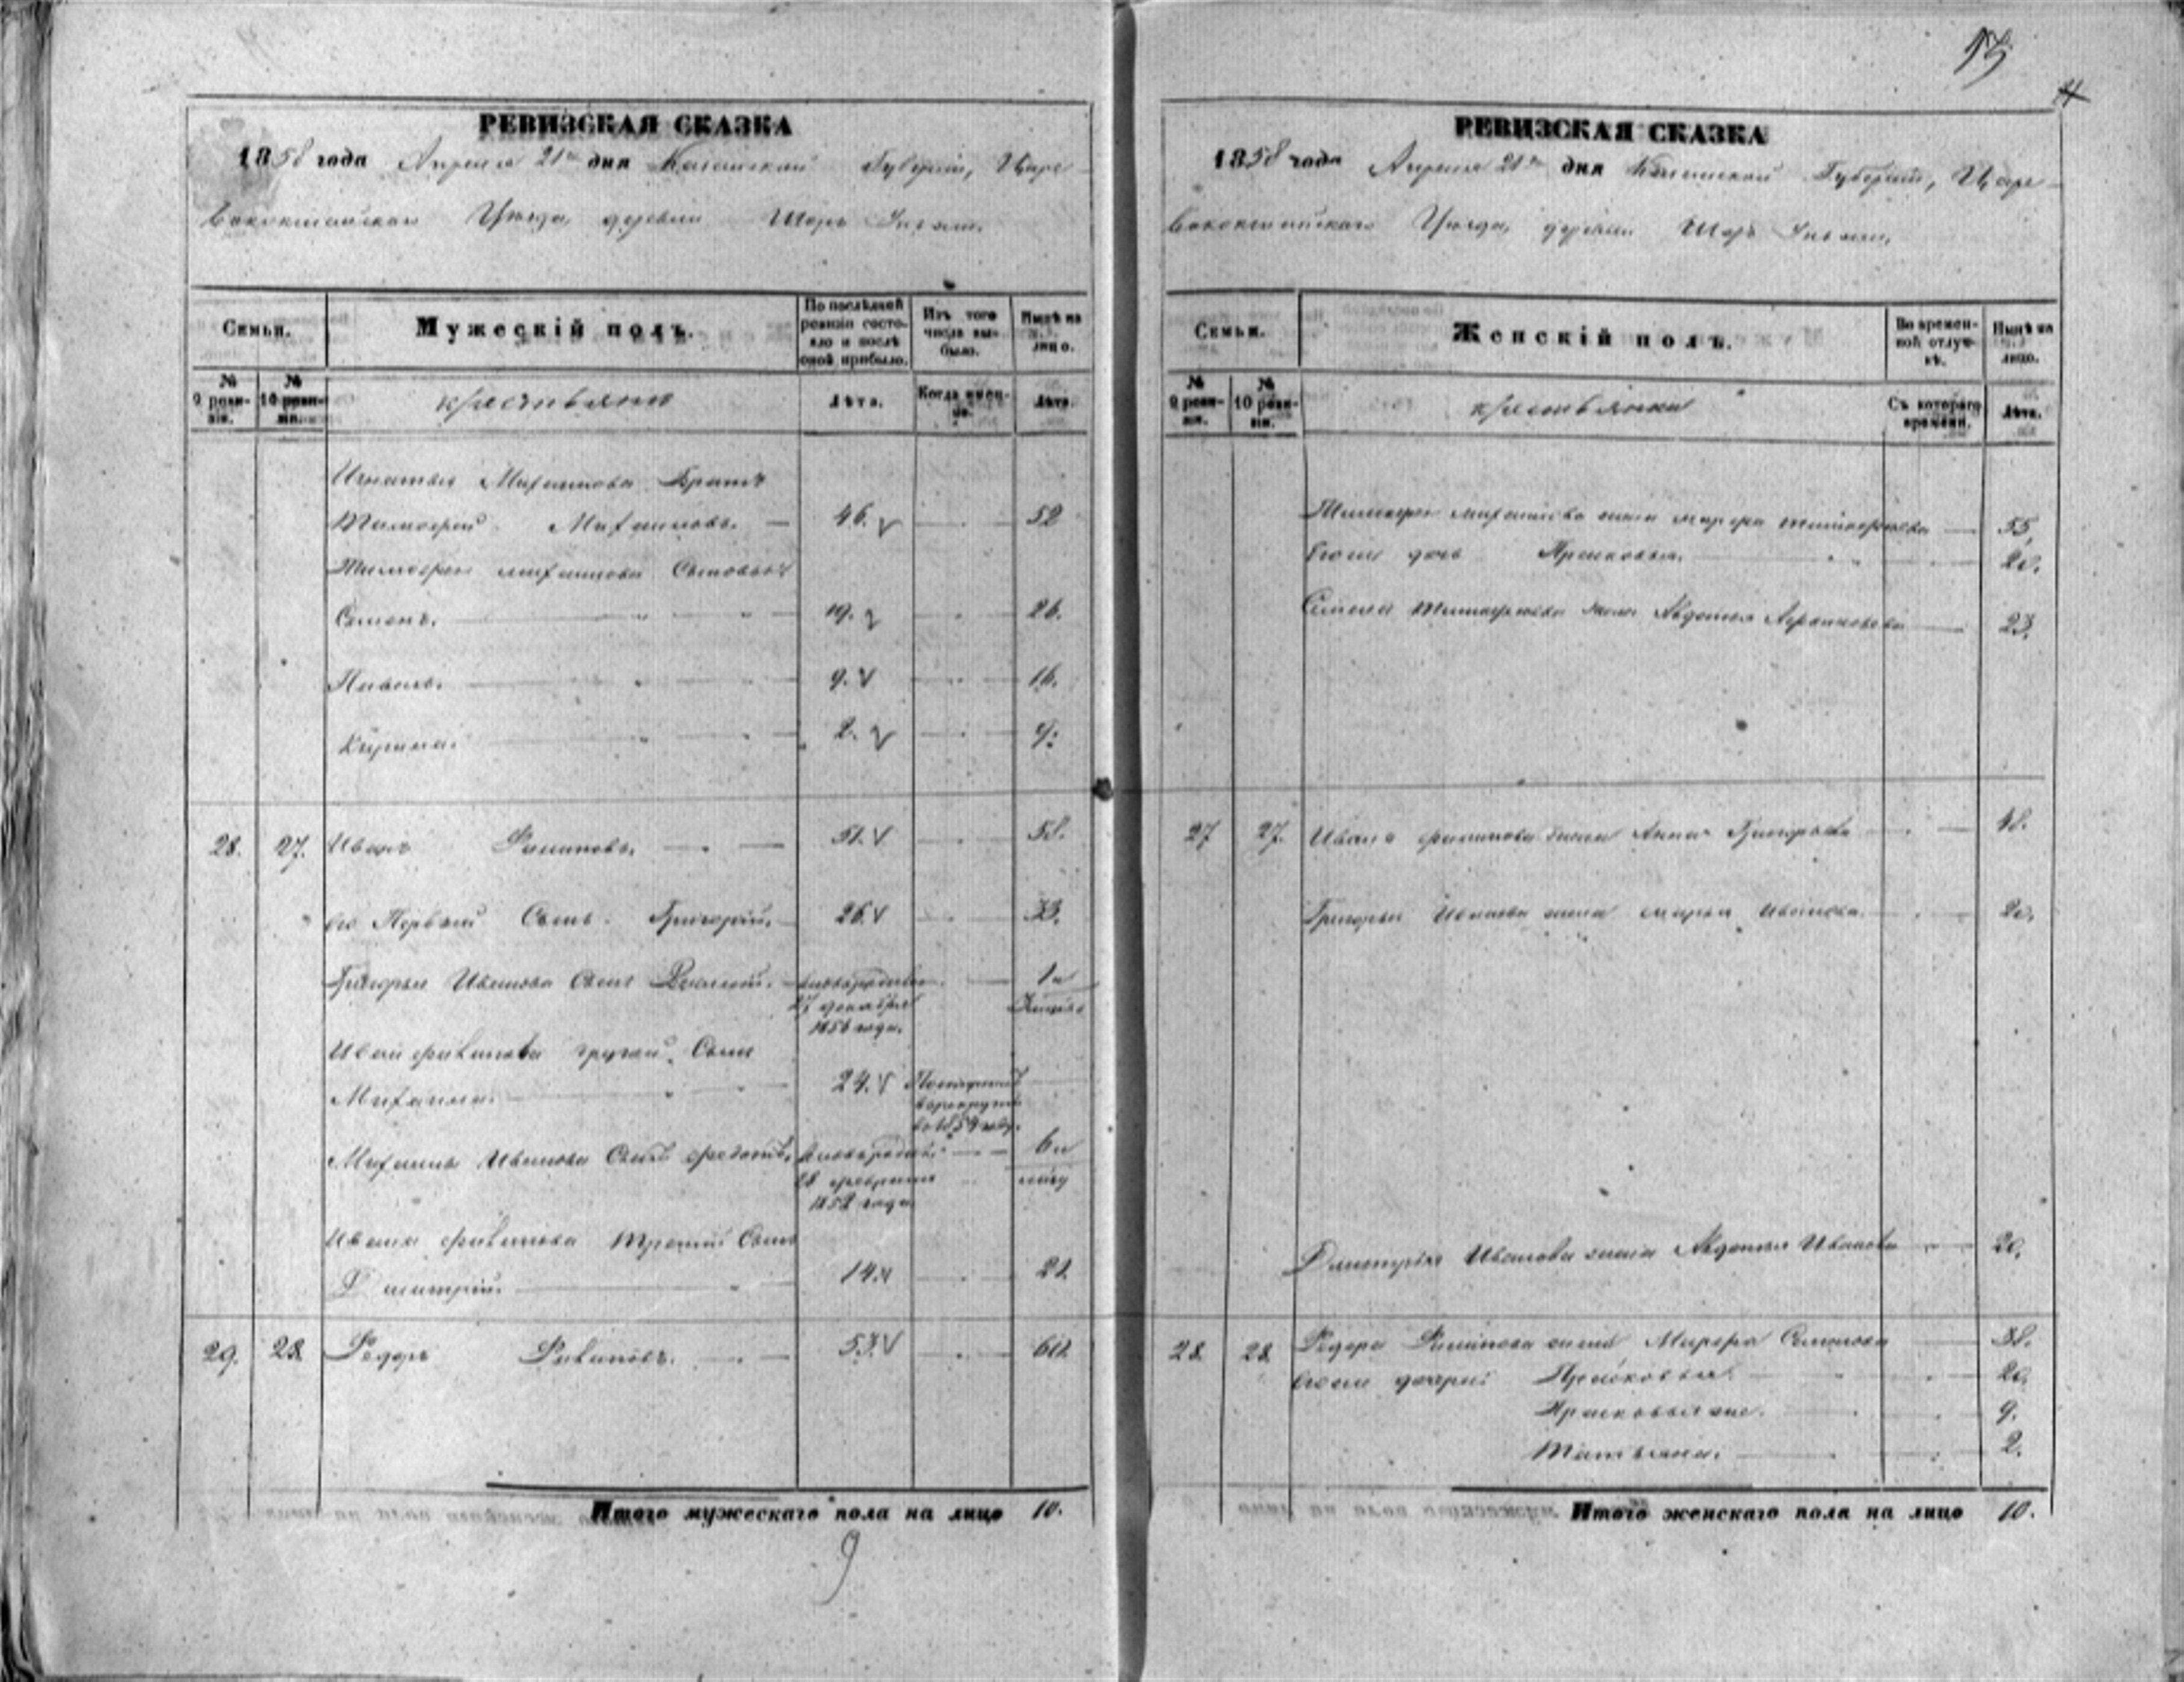 РЕВИЗСКАЯ СКАЗКА
1858 года Апреля 21го дня Казанской Губернiи, Царе-
вококшайскаго Уѣзда, деревни Шоръ
Семьи.
Мужескiй полъ.
По послѣдней ревизiи состояло и послѣ оной прибыло.
Изъ того числа выбыло.
Нынѣ на лицо.
№ 9 ревизiи.
№ 10 ревизiи.
крестьяне
Лѣта.
Когда именно.
Лѣта.
Игнатья Михайлова Братъ
Тимофей Михайловъ. 46. 52
Тимофея Михайлова Сыновья
Семенъ. 19. 26.
Павелъ. 9. 16.
Кирила. 2. 9.
28. 27. Иванъ Филиповъ. 51. 58.
его Первый Сынъ Григорiй. 26. 33.
Григорья Иванова Сынъ новорожден. 1 и
27 декабря
1856 года.
Ивана Филипова другой Сынъ
Михаила. 24.
в рекруты
Михаила Иванова Сынъ Федотъ. новорожден. 6 и
28 февраля
1852 года
Ивана Филипова Третiй Сынъ
Дмитрiй. 14. 21
29. 28. Федоръ Филиповъ. 53. 60.
Итого мужескаго пола на лицо 10.
9
РЕВИЗСКАЯ СКАЗКА
1858 года Апреля 21го дня Казанской Губернiи, Царе-
вококшайскаго Уѣзда, деревни Шоръ
Семьи.
Женскiй полъ.
Во временной отлучкѣ.
Нынѣ на лицо.
№ 9 ревизiи.
№ 10 ревизiи.
крестьянки
Съ котораго времени.
Лѣта.
Тимофея Михайлова жена Марфа Тимофеева 55.
Его дочь Прасковья. 20.
Семена Тимофеева жена Авдотья 23.
27 27. Ивана Филипова жена Анна Григорьева
Григорья Иванова жена Марья Иванова. 20.
Дмитрiя Иванова жена Авдотья Иванова 20.
28. 28. Федора Филипова жена Марфа Семенова 38.
Его дочери: Прасковья. 20.
Прасковья же. 9.
Татьяна. 2.
Итого женскаго пола на лицо 10.